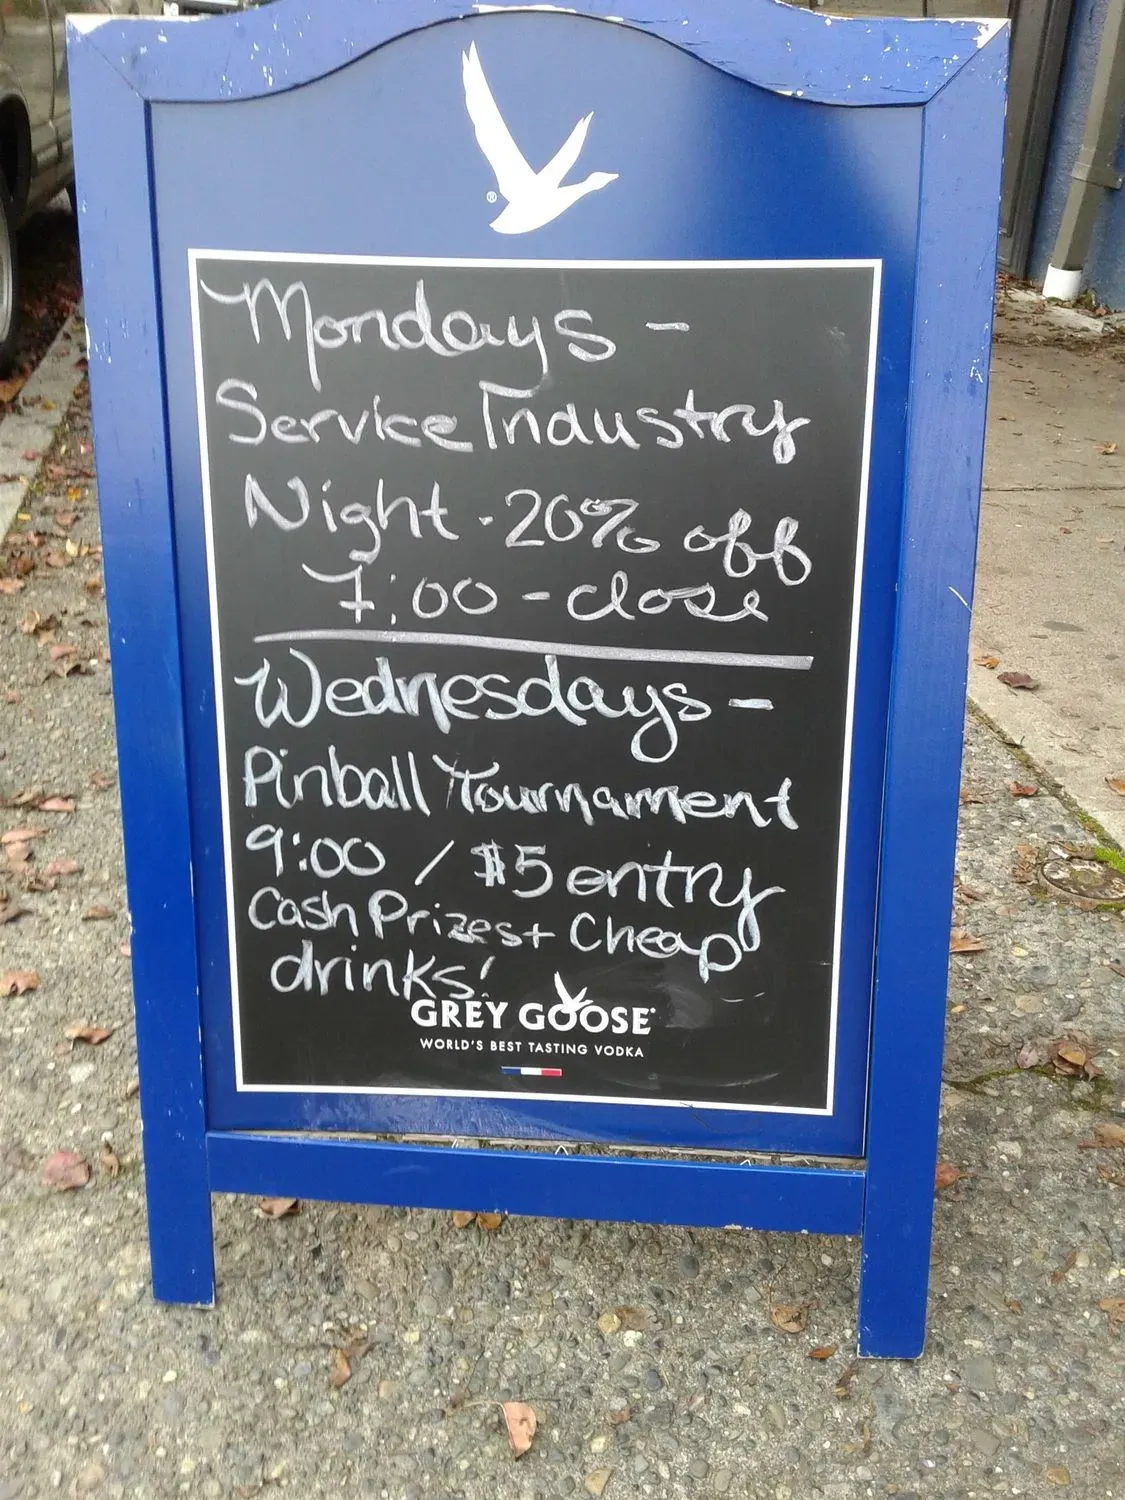 ®
Mondays -
Service Industry
Night - 20% off
7:00 - close
Wednesdays -
Pinball Tournament
9:00 / $5 entry
Cash Prizes + Cheap
drinks!
GREY GOOSE
WORLD'S BEST TASTING VODKA